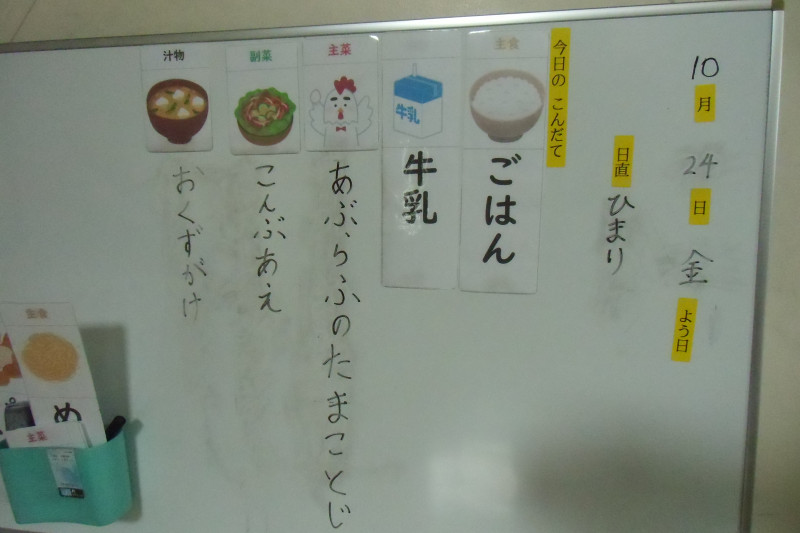 10月24日金よう日
日直 ひまり
今日の こんだて
主食
ごはん
牛乳
牛乳
主菜
あぶらふのたまことじ
副菜
こんぶあえ
汁物
おくずがけ
主食
め
主菜